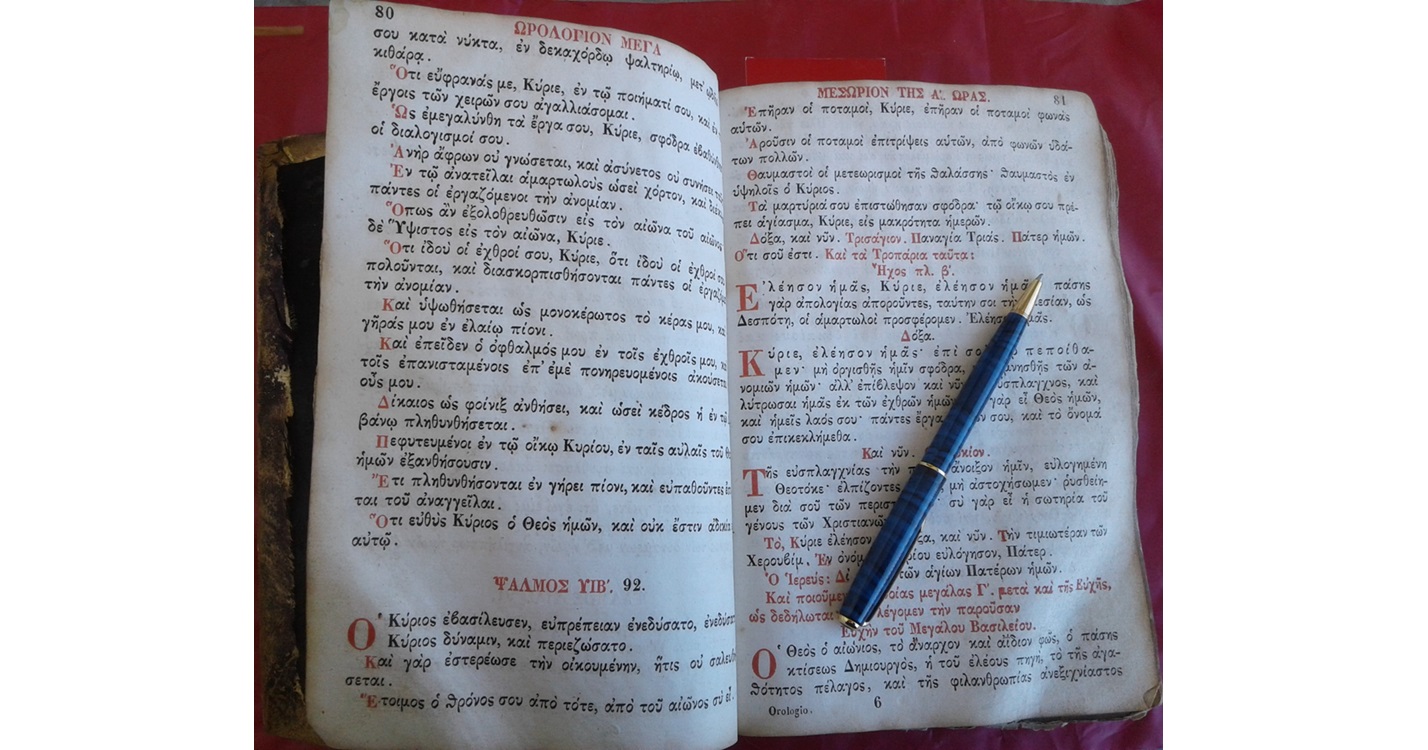 80
ΩΡΟΛΟΓΙΟΝ ΜΕΓΑ
σου κατὰ νύκτα, ἐν δεκαχόρδῳ ψαλτηρίῳ, μετ'
κιθάρᾳ.
Ὅτι εὔφρανάς με, Κύριε, ἐν τῷ ποιήματί σου, καὶ ἐν
ἔργοις τῶν χειρῶν σου ἀγαλλιάσομαι.
Ὡς ἐμεγαλύνθη τὰ ἔργα σου, Κύριε, σφόδρα
οἱ διαλογισμοί σου.
Ἀνὴρ ἄφρων οὐ γνώσεται, καὶ ἀσύνετος οὐ συνήσει
Ἐν τῷ ἀνατεῖλαι ἁμαρτωλοὺς ὡσεὶ χόρτον, καὶ
πάντες οἱ ἐργαζόμενοι τὴν ἀνομίαν.
Ὅπως ἂν ἐξολοθρευθῶσιν εἰς τὸν αἰῶνα τοῦ αἰῶνος
δὲ Ὕψιστος εἰς τὸν αἰῶνα, Κύριε.
Ὅτι ἰδοὺ οἱ ἐχθροί σου, Κύριε, ὅτι ἰδοὺ οἱ ἐχθροί
πολοῦνται, καὶ διασκορπισθήσονται πάντες οἱ
τὴν ἀνομίαν.
Καὶ ὑψωθήσεται ὡς μονοκέρωτος τὸ κέρας μου,
γῆράς μου ἐν ἐλαίῳ πίονι.
Καὶ ἐπεῖδεν ὁ ὀφθαλμός μου ἐν τοῖς ἐχθροῖς μου,
τοῖς ἐπανισταμένοις ἐπ' ἐμὲ πονηρευομένοις ἀκούσεται
οὖς μου.
Δίκαιος ὡς φοίνιξ ἀνθήσει, καὶ ὡσεὶ κέδρος ἡ ἐν τῷ
βάνῳ πληθυνθήσεται.
Πεφυτευμένοι ἐν τῷ οἴκῳ Κυρίου, ἐν ταῖς αὐλαῖς τοῦ
ἡμῶν ἐξανθήσουσιν.
Ἔτι πληθυνθήσονται ἐν γήρει πίονι, καὶ εὐπαθοῦντες
ται τοῦ ἀναγγεῖλαι.
Ὅτι εὐθὺς Κύριος ὁ Θεὸς ἡμῶν, καὶ οὐκ ἔστιν ἀδικία
αὐτῷ.
ΨΑΛΜΟΣ ϤΒ'. 92.
Ὁ Κύριος ἐβασίλευσεν, εὐπρέπειαν ἐνεδύσατο,
Κύριος δύναμιν, καὶ περιεζώσατο.
Καὶ γὰρ ἐστερέωσε τὴν οἰκουμένην, ἥτις οὐ
σεται.
Ἕτοιμος ὁ θρόνος σου ἀπὸ τότε, ἀπὸ τοῦ αἰῶνος σὺ εἶ.
ΜΕΣΩΡΙΟΝ ΤΗΣ Α'. ΩΡΑΣ.
81
Ἐπῆραν οἱ ποταμοί, Κύριε, ἐπῆραν οἱ ποταμοὶ φωνὰς
αὐτῶν.
Ἀροῦσιν οἱ ποταμοὶ ἐπιτρίψεις αὐτῶν, ἀπὸ φωνῶν ὑδά-
των πολλῶν.
Θαυμαστοὶ οἱ μετεωρισμοὶ τῆς θαλάσσης· θαυμαστὸς ἐν
ὑψηλοῖς ὁ Κύριος.
Τὰ μαρτύριά σου ἐπιστώθησαν σφόδρα· τῷ οἴκῳ σου πρέ-
πει ἁγίασμα, Κύριε, εἰς μακρότητα ἡμερῶν.
Δόξα, καὶ νῦν. Τρισάγιον. Παναγία Τριάς. Πάτερ ἡμῶν.
Ὅτι σοῦ ἐστι. Καὶ τὰ Τροπάρια ταῦτα:
Ἦχος πλ. β'.
Ἐλέησον ἡμᾶς, Κύριε, ἐλέησον πάσης
γὰρ ἀπολογίας ἀποροῦντες, ταύτην σοι τὴν ὡς
Δεσπότῃ, οἱ ἁμαρτωλοὶ προσφέρομεν.
Δόξα.
Κύριε, ἐλέησον ἡμᾶς· ἐπὶ πεποίθα-
μεν· μὴ ὀργισθῇς ἡμῖν σφόδρα, τῶν ἀ-
νομιῶν ἡμῶν· ἀλλ' ἐπίβλεψον καὶ καὶ
λύτρωσαι ἡμᾶς ἐκ τῶν ἐχθρῶν γὰρ εἶ Θεὸς ἡμῶν,
καὶ ἡμεῖς λαός σου· πάντες σου, καὶ τὸ ὄνομά
σου ἐπικεκλήμεθα.
Καὶ νῦν.
Τῆς εὐσπλαγχνίας τὴν ἄνοιξον ἡμῖν, εὐλογημένη
Θεοτόκε· ἐλπίζοντες μὴ ἀστοχήσωμεν· ῥυσθείη-
μεν διὰ σοῦ τῶν σὺ γὰρ εἶ ἡ σωτηρία τοῦ
γένους τῶν
Τό, Κύριε ἐλέησον καὶ νῦν. Τὴν τιμιωτέραν τῶν
Χερουβίμ, Ἐν εὐλόγησον, Πάτερ.
Ὁ Ἱερεύς: τῶν ἁγίων Πατέρων ἡμῶν.
Καὶ μεγάλας Γ'. μετὰ καὶ τῆς Εὐχῆς,
ὡς δεδήλωται λέγομεν τὴν παροῦσαν
Εὐχὴν τοῦ Μεγάλου Βασιλείου.
Ὁ Θεὸς ὁ αἰώνιος, τὸ ἄναρχον καὶ ἀΐδιον φῶς, ὁ πάσης
κτίσεως Δημιουργός, ἡ τοῦ ἐλέους πηγή, τὸ τῆς ἀγα-
θότητος πέλαγος, καὶ τῆς φιλανθρωπίας ἀνεξιχνίαστος
Orologio.
6